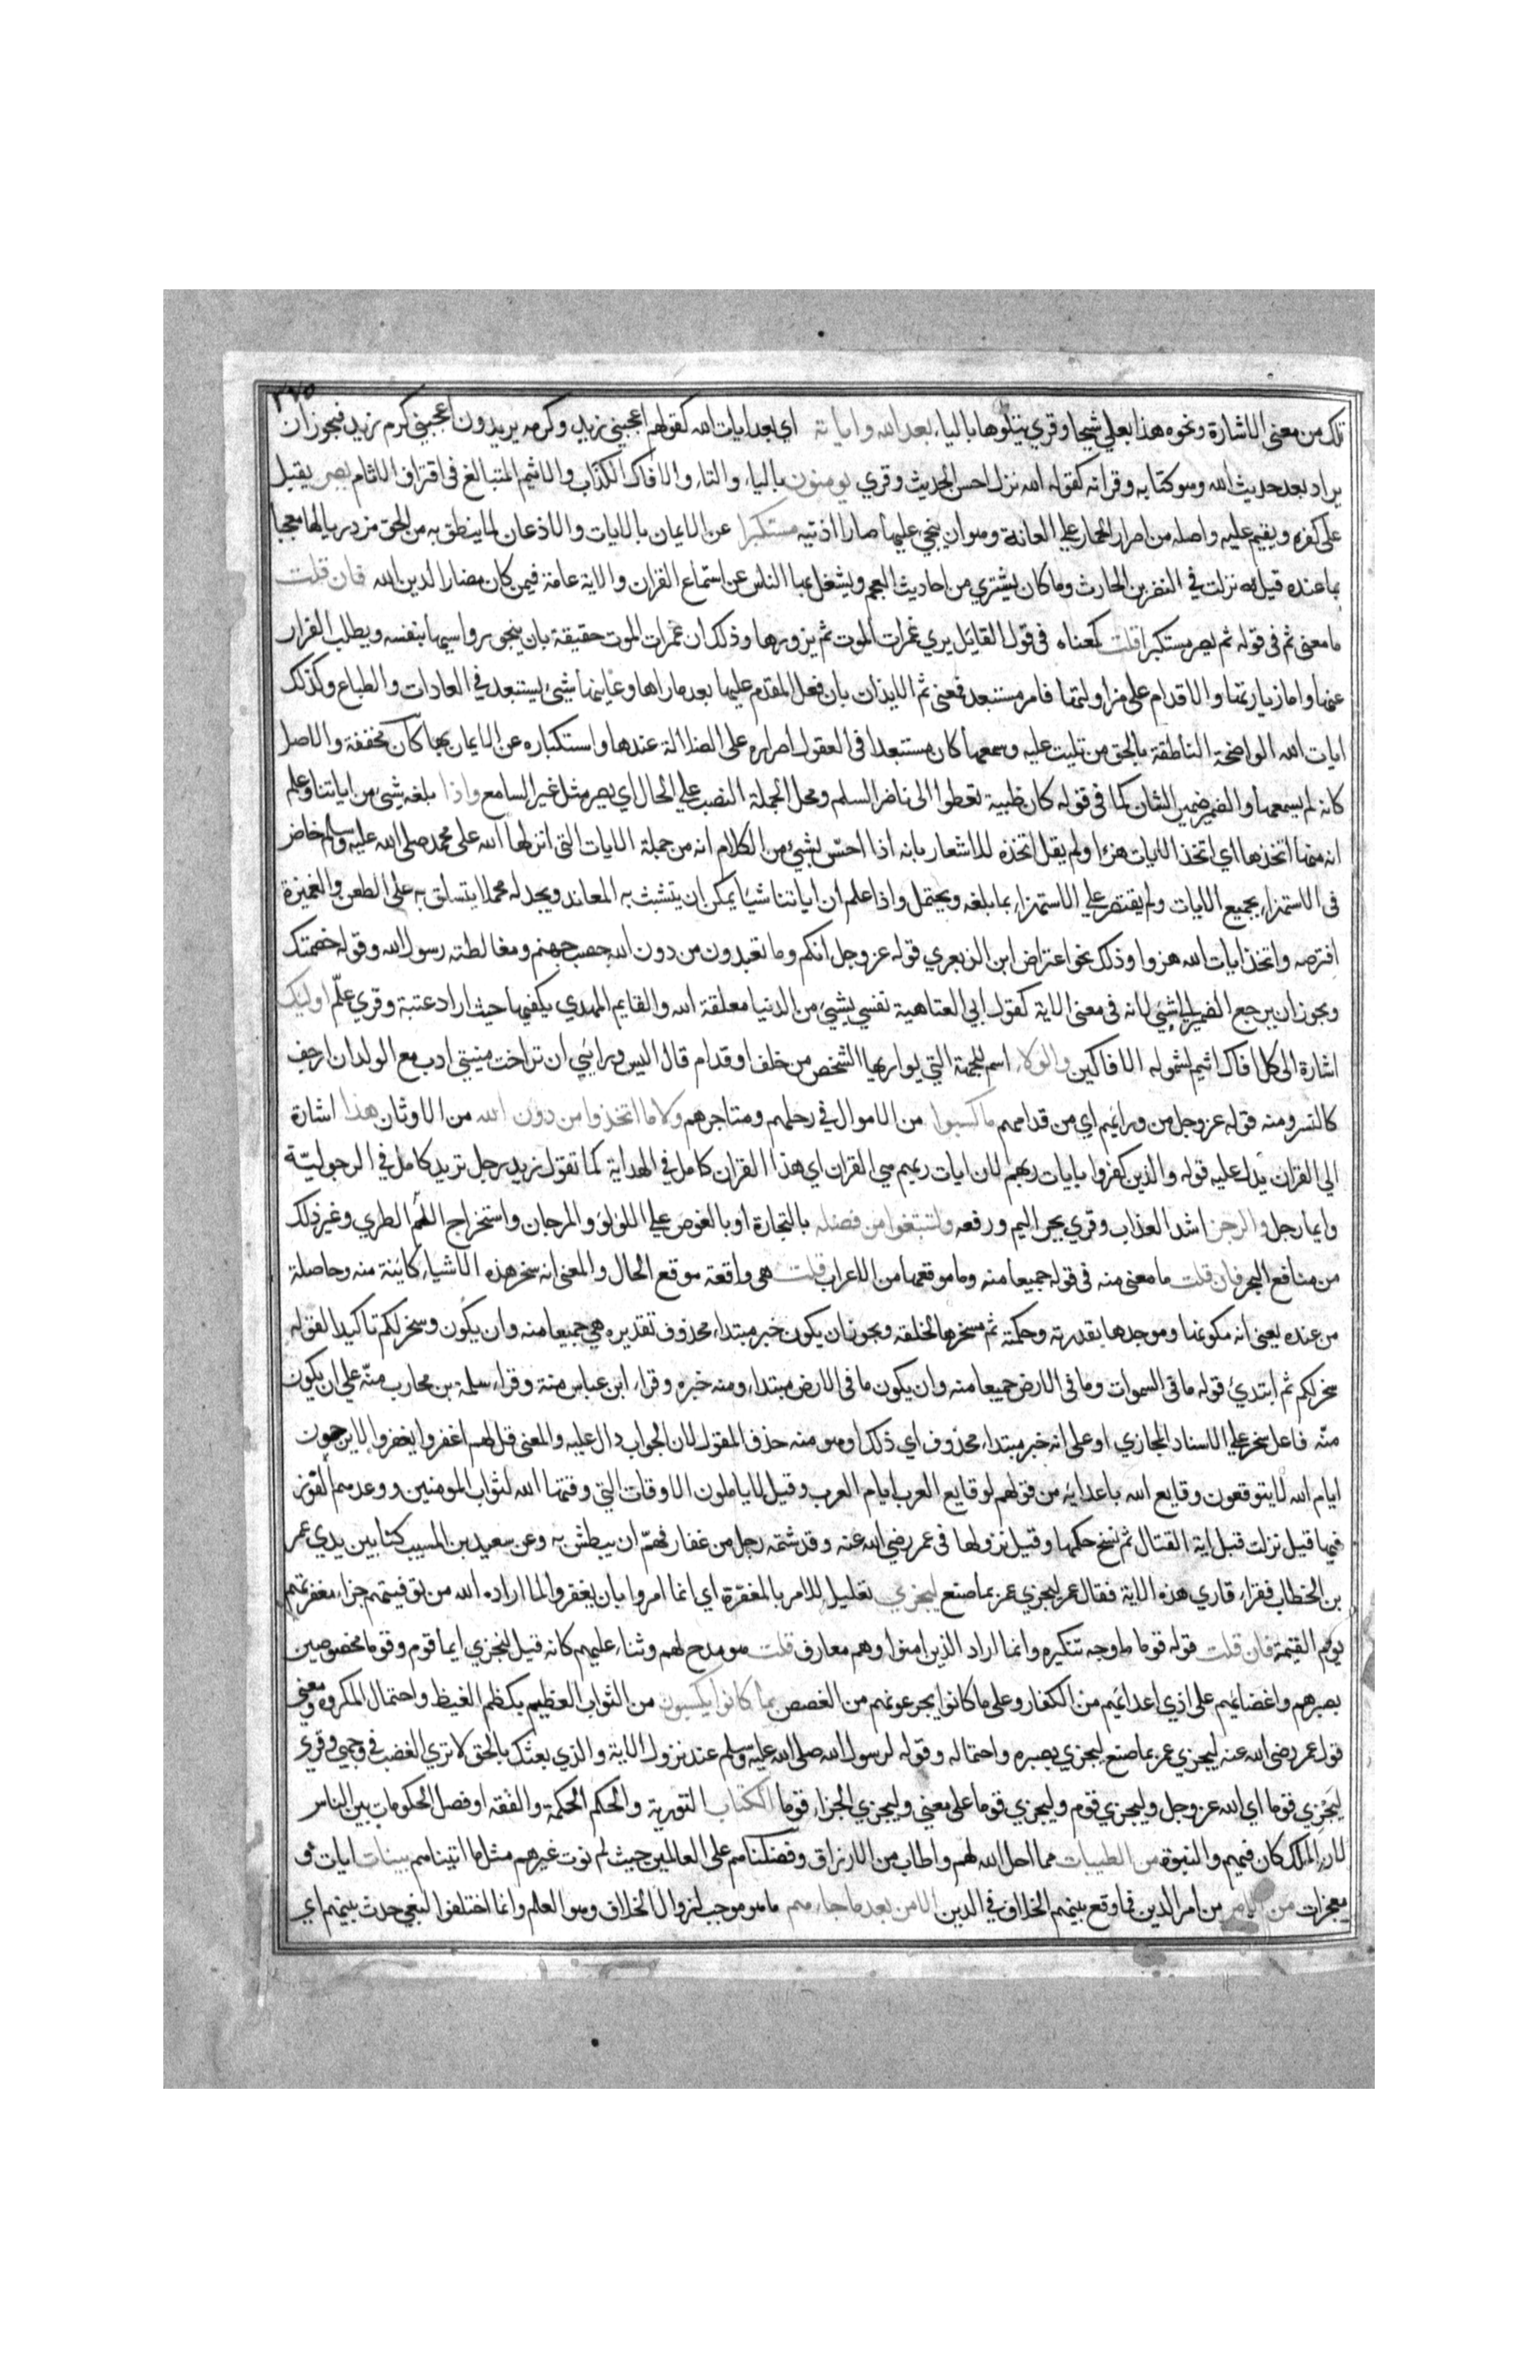 ٢٧٥
تلك من معنى الاشارة ونحوه هذا بعلي شيخا وقري يتلوها باليا، بعد الله واياته اي بعد ايات الله كقولهم اعجبني زيد وكرمه يريدون اعجبني كرم زيد فيجوز ان
يراد بعد حديث الله وهو كتابه وقرانه كقوله الله نزل احسن الحديث وقري يومنون باليا، والتا، والافاك الكذاب والاثيم المتبالغ في اقتراف الاثام يصر يقبل
على كفره ويقيم عليه واصله من اصرار الحمار علي العانة وهو ان ينحي عليها صارا اذنيه مستكبرا عن الايمان بالايات والاذعان لما ينطق به من الحق مزدريا لها معجبا
بما عنده قيل نزلت في النضر بن الحارث وما كان يشتري من احاديث العجم ويشغل بها الناس عن استماع القران والاية عامة فيمن كان مضارا لدين الله فان قلت
ما معنى ثم في قوله ثم يصر مستكبرا قلت كمعناه في قول القايل يري غمرات الموت ثم يزورها وذلك ان غمرات الموت حقيقة بان ينجو راسيها بنفسه ويطلب الفرار
عنها واما زيارتها والاقدام على مزاولتها فامر مستبعد فمعنى ثم الايذان بان فعل المقدم عليها بعد ما راها وعاينها شيئ يستبعد في العادات والطباع وكذلك
ايات الله الواضحة الناطقة بالحق من تليت عليه وسمعها كان مستبعدا في العقول اصراره على الضلالة عندها واستكباره عن الايمان بها كان مخففة والاصل
كانه لم يسمعها والضمير ضمير الشان كما في قوله كان ظبية تعطوا الى ناضر السلم ومحل الجملة النصب علي الحال اي يصر مثل غير السامع واذا بلغه شيئ من اياتنا وعلم
انه منها اتخذها اي اتخذ الايات هزءا ولم يقل اتخذه للاشعار بانه اذا احس بشيئ من الكلام انه من جملة الايات التي انزلها الله على محمد صلى الله عليه وسلم خاض
في الاستهزا، بجميع الايات ولم يقتصر علي الاستهزا، بما بلغه ويحتمل واذا علم ان اياتنا شيا يمكن ان يتشبث به المعاند ويجد له محملا يتسلق به على الطعن والغميزة
افترصه واتخذ ايات الله هزوا وذلك نحو اعتراض ابن الزبعري قوله عز وجل انكم وما تعبدون من دون الله حصب جهنم ومغالطته رسول الله وقوله خصمتك
ويجوز ان يرجع الضمير الى شيئ لانه في معنى الاية كقول ابي العتاهية نفسي بشيئ من الدنيا معلقة الله والقايم المهدي يكفيها حيث اراد عتبة وقري علم اوليك
اشارة الى كل افاك اثيم لشموله الافاكين والورا، اسم للجهة التي يواريها الشخص من خلف او قدام قال اليس ورايي ان تراخت منيتي ادب مع الولدان ازحف
كالنسر ومنه قوله عز وجل من ورايهم اي من قدامهم ما كسبوا من الاموال في رحلهم ومتاجرهم ولا ما اتخذوا من دون الله من الاوثان هذا اشارة
الي القران يدل عليه قوله والذين كفروا بايات ربهم لان ايات ربهم هي القران اي هذا القران كامل في الهداية كما تقول زيد رجل تريد كامل في الرجولية
وايما رجل والرجز اشد العذاب وقري بجر اليم ورفعه ولتبتغوا من فضله بالتجارة او بالغوص علي اللولو والمرجان واستخراج اللحم الطري وغير ذلك
من منافع البحر فان قلت ما معنى منه في قوله جميعا منه وما موقعها من الاعراب قلت هي واقعة موقع الحال والمعنى انه سخر هذه الاشيا، كاينة منه وحاصلة
من عنده يعني انه مكونها وموجدها بقدرته وحكمة ثم مسخرها لخلقه ويجوز ان يكون خبر مبتدا، محذوف تقديره هي جميعا منه وان يكون وسخر لكم تاكيدا لقوله
سخر لكم ثم ابتدئ قوله ما في السموات وما في الارض جميعا منه وان يكون ما في الارض مبتدا، ومنه خبره وقرا، ابن عباس منة وقرا، سلمة بن محارب منه علي ان يكون
منه فاعل سخر علي الاسناد المجازي او على انه خبر مبتدا، محذوف اي ذلك او هو منه حذف المقول لان الجواب دال عليه والمعنى قل لهم اغفروا يغفروا لا يرجون
ايام الله لا يتوقعون وقايع الله باعدايه من قولهم لوقايع العرب ايام العرب وقيل لا ياملون الاوقات التي وقتها الله لثواب المومنين ووعدهم الفوز
فيها قيل نزلت قبل اية القتال ثم نسخ حكمها وقيل نزولها في عمر رضي الله عنه وقد شتمه رجل من غفار فهم ان يبطش به وعن سعيد بن المسيب كنا بين يدي عمر
بن الخطاب فقرا، قاري هذه الاية فقال عمر ليجزي عمر بما صنع ليجزي تعليل للامر بالمغفرة اي انما امروا بان يغفروا لما اراده الله من توفيتهم جزا، مغفرتهم
يوم القيمة فان قلت قوله قوما ما وجه تنكيره وانما اراد الذين امنوا وهم معارف قلت هو مدح لهم وثنا، عليهم كانه قيل ليجزي ايما قوم وقوما مخصوصين
بصبرهم واغضايهم على اذي اعدايهم من الكفار وعلى ما كانوا يجرعونهم من الغصص بما كانوا يكسبون من الثواب العظيم بكظم الغيظ واحتمال المكروه ومعنى
قول عمر رضي الله عنه ليجزي عمر بما صنع ليجزي بصبره واحتماله وقوله لرسول الله صلى الله عليه وسلم عند نزول الاية والذي بعثك بالحق لا تري الغضب في وجهي وقري
ليجزي قوما اي الله عز وجل وليجزي قوم وليجزي قوما على معني وليجزي الجزا، قوما الكتاب التورية والحكم الحكمة والفقه او فصل الحكومات بين الناس
لان الملك كان فيهم والنبوة من الطيبات مما احل الله لهم واطاب من الارزاق وفضلناهم على العالمين حيث لم نوت غيرهم مثل ما اتيناهم بينات ايات و
معجزات من الامر من امر الدين فما وقع بينهم الخلاف في الدين الا من بعد ما جا، هم ما هو موجب لزوال الخلاف وهو العلم وانما اختلفوا لبغي حدث بينهم اي